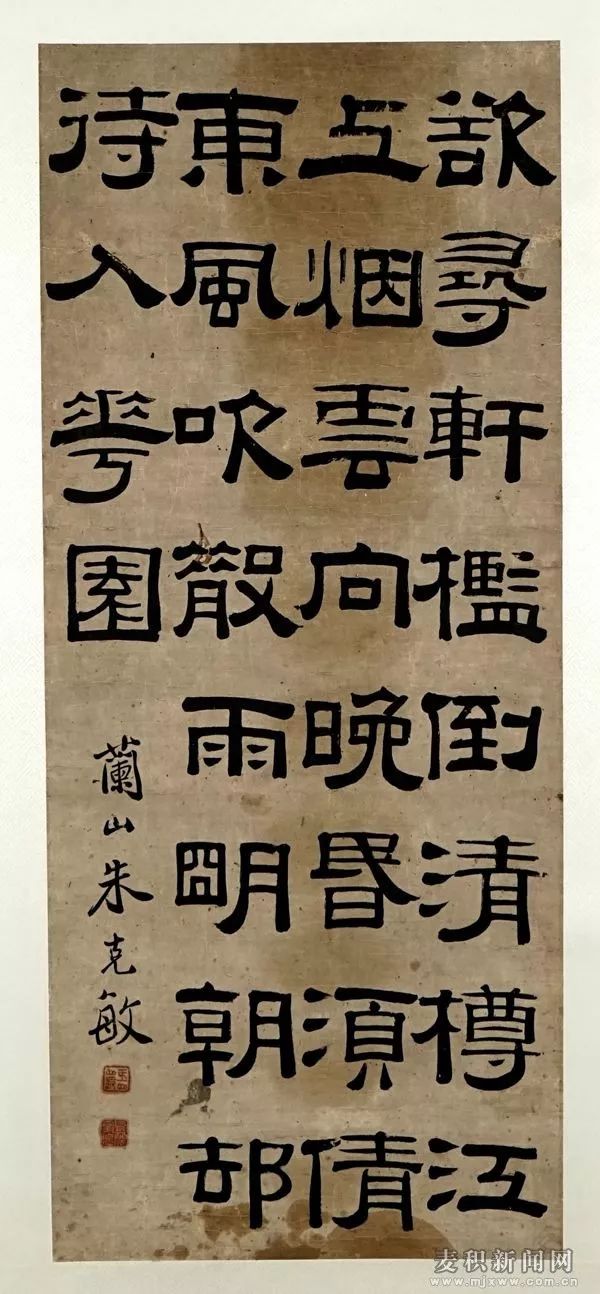 欲尋軒檻倒清樽江
上烟雲向晚昏須倩
東風吹散雨明朝却
待入華園
蘭山朱克敏
麦积新闻网
www.mjxww.com